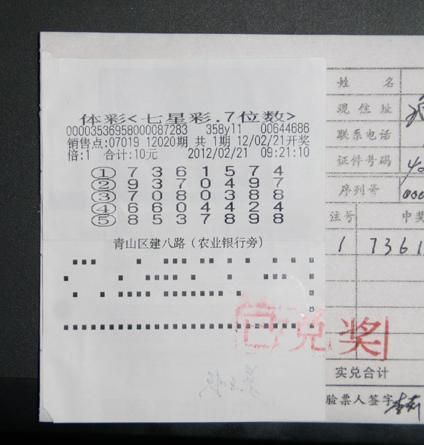 体彩<七星彩.7位数>
00003536958000087283 358y11 00644686
销售点:07019 12020期 共 1期 12/02/21开奖
倍:1 合计:10元 2012/02/21 09:21:10
① 7 3 6 1 5 7 4
② 9 3 7 0 4 9 7
③ 7 0 6 0 3 8 8
④ 6 6 0 4 4 2 4
⑤ 8 5 3 7 8 9 8
青山区建八路(农业银行旁)
已兑奖
姓 名
现 住 址
联系电话
证件号码
序列号
注号 中奖
1 7361
实兑合计
验票人签字